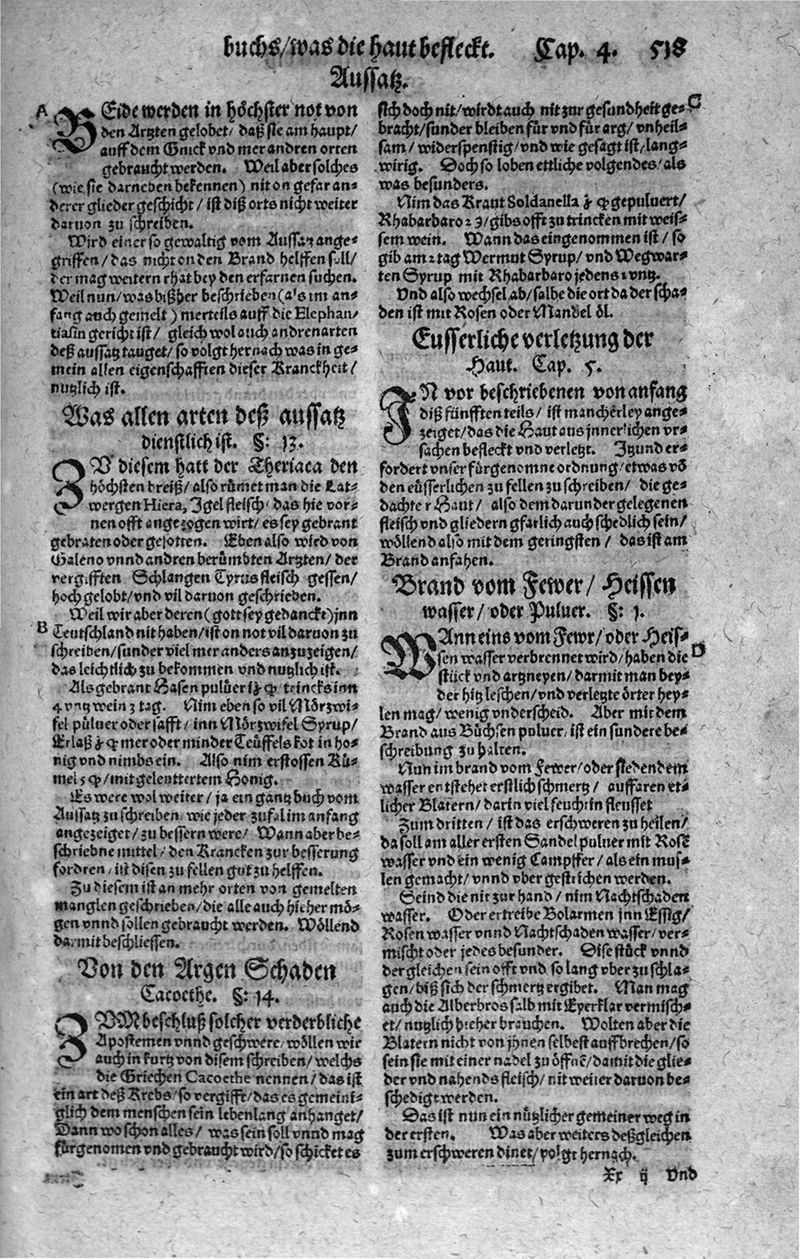 buchs/was die haut befleckt. Cap. 4. 518
Aussatz.
A
BEide werden in höchster not von
den Artzten gelobet/ daß sie am haupt/
auff dem Gnick vnd mer andren orten
gebraucht werden. Weil aber solches
(wie sie darneben bekennen) nit on gefar an-
derer glieder geschicht/ ist diß orts nicht weiter
daruon zu schreiben.
Wird einer so gewaltig vom Aussatz ange-
griffen/ das nicht on den Brand helffen soll/
der mag weitern rhat bey den erfarnen suchen.
Weil nun/ was bißher beschrieben (als im an-
fang auch gemelt) merteils auff die Elephan-
tiasin gericht ist/ gleich wol auch andren arten
deß aussatz tauget/ so volgt hernach was in ge-
mein allen eigenschafften dieser Kranckheit/
nutzlich ist.
Was allen arten deß aussatz
dienstlich ist. §: 13.
ZV diesem hatt der Theriaca den
höchsten breiß/ also rümet man die Lat-
wergen Hiera, Igelfleisch/ das hie vor-
nen offt angezogen wirt/ es sey gebrant
gebraten oder gesotten. Eben also wird von
Galeno vnnd andren berümbten Artzten/ der
vergifften Schlangen Tyrus fleisch gessen/
hoch gelobt/ vnd vil daruon geschrieben.
B
Weil wir aber deren (gott sey gedanckt) jnn
Teutschland nit haben/ ist on not vil daruon zu
schreiben/ sunder viel mer anders anzuzeigen/
das leichtlich zu bekommen vnd nutzlich ist.
Als gebrant Hasen puluer trincks inn
4 vntz wein 3 tag. Nim eben so vil Mörzwi-
fel puluer oder safft/ inn Mörzwifel Syrup/
mer oder minder Teüffels kot in ho-
nig vnd nimbs ein. Also nim erstossen Kü-
mel /mit geleuttertem Honig.
Es were wol weiter/ ja ein gantz buch vom
Aussatz zu schreiben wie jeder zufal im anfang
angezeiget/ zu bessern were/ Wann aber be-
schriebne mittel/ den Krancken zur besserung
fordren/ ist disen zu fellen gut zu helffen.
Zu diesem ist an mehr orten von gemelten
manglen geschrieben/ die alle auch hieher mö-
gen vnnd sollen gebraucht werden. Wöllend
darmit beschliessen.
Von den Argen Schaden
Cacoethe. §: 14.
ZVM beschluß solcher verderbliche
Apostemen vnnd geschwere/ wöllen wir
auch in kurtz von disem schreiben/ welchs
die Griechen Cacoethe nennen/ das ist
ein art deß Krebs/ so vergifft/ das es gemeini-
glich dem menschen sein lebenlang anhanget/
Dann wo schon alles/ was sein soll vnnd mag
fürgenomen vnd gebraucht wird/ so schicket es
C
sich doch nit/ wirdt auch nit zur gesundheit ge-
bracht/ sunder bleiben für vnd für arg/ vnheil-
sam/ widerspenstig/ vnd wie gesagt ist/ lang-
wirig. Doch so loben ettliche volgendes/ als
was besunders.
Nim das Kraut Soldanella gepuluert/
Rhabarbaro 2 3/ gibs offt zu trincken mit weis-
sem wein. Wann das eingenommen ist/ so
gib am 2 tag Wermut Syrup/ vnd Wegwar-
ten Syrup mit Rhabarbaro jedens 1 vntz.
Vnd also wechsel ab/ salbe die ort da der scha-
den ist mit Rosen oder Mandel öl.
Eusserliche verletzung der
Haut. Cap. 5.
IN vor beschriebenen von anfang
diß fünfften teils/ ist mancherley ange-
zeiget/ das die Haut aus jnnerlichen vr-
sachen befleckt vnd verletzt. Itzund er-
fordert vnser fürgenomne ordnung/ etwas vō
den eüsserlichen zu fellen zu schreiben/ die ge-
dachter Haut/ also dem darunder gelegenen
fleisch vnd gliedern gfarlich auch schedlich sein/
wöllend also mit dem geringsten/ das ist am
Brand anfahen.
Brand vom Fewer/ Heissen
wasser/ oder Puluer. §: 1.
D
WAnn eins vom Fewr/ oder Heis-
sen wasser verbrennet wird/ haben die
stück vnd artzneyen/ darmit man bey-
der hitz leschen/ vnd verletzte örter hey-
len mag/ wenig vnderscheid. Aber mit dem
Brand aus Büchsen puluer/ ist ein sundere be-
schreibung zu halten.
Nun im brand vom Fewer/ oder siedendem
wasser entstehet erstlich schmertz/ auffaren et-
licher Blatern/ darin viel feucht in fleusset
Zum dritten/ ist das erschweren zu heilen/
da soll am aller ersten Sandel puluer mit Rosē
wasser vnd ein wenig Campffer/ als ein mus-
len gemacht/ vnnd vber gestrichen werden.
Seind die nit zur hand/ nim Nachtschaden
wasser. Oder ertreibe Bolarmen jnn Essig/
Rosen wasser vnnd Nachtschaden wasser/ ver-
mischt oder jedes besunder. Dise stück vnnd
der gleichen sein offt vnd so lang vber zu schla-
gen/ biß sich der schmertz ergibet. Man mag
auch die Alberbros salb mit Eyerklar vermisch-
et/ nutzlich hieher brauchen. Wolten aber die
Blatern nicht von jhnen selbest auffbrechen/ so
sein sie mit einer nadel zu öffnē/ damit die glie-
der vnd nahends fleisch/ nit weiter daruon be-
schedigt werden.
Das ist nun ein nützlicher gemeiner weg in
der ersten. Was aber weiters deßgleichen
zum erschweren dinet/ volgt hernach.
Xx ij Vnd